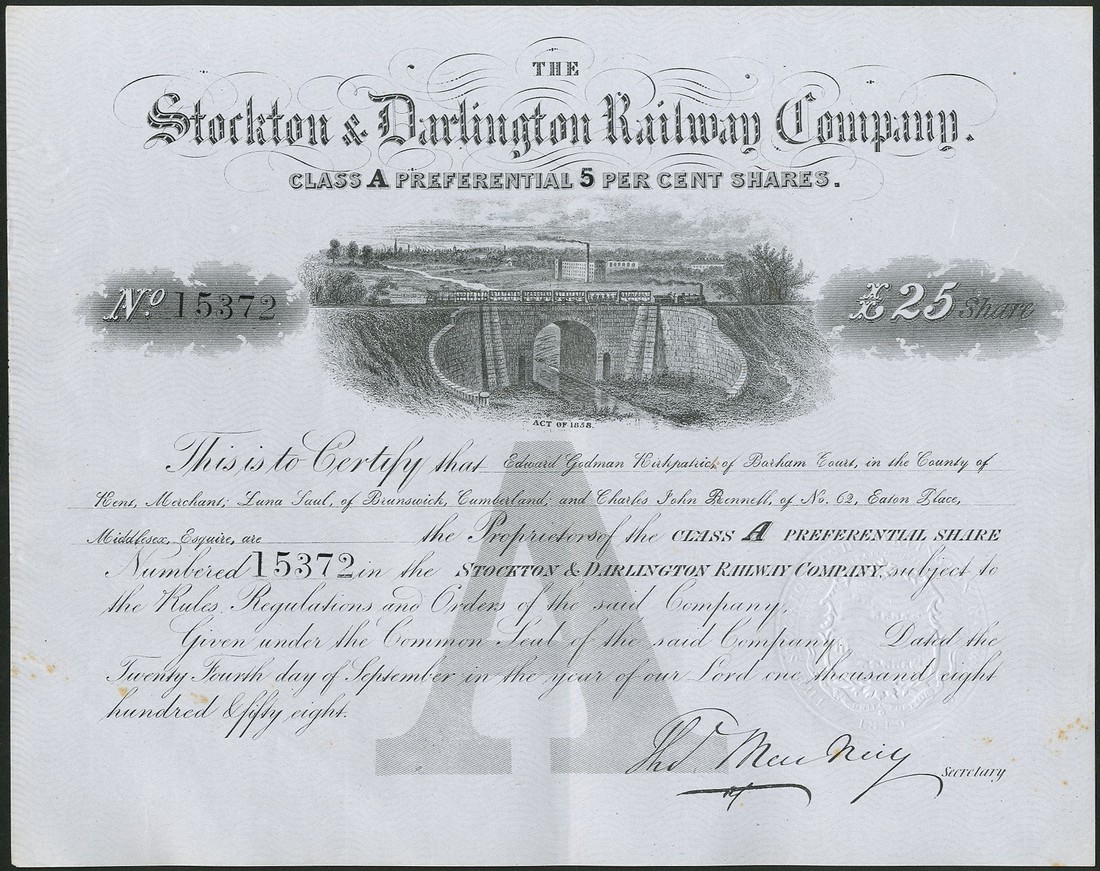 THE
Stockton & Darlington Railway Company.
CLASS A PREFERENTIAL 5 PER CENT SHARES.
No. 15372
£25 Share
ACT OF 1858.
This is to Certify that Edward Godman Kirkpatrick of Barham Court, in the County of
Kent, Merchant; Luna Saul, of Brunswick, Cumberland; and Charles John Bennett, of No. 62, Eaton Place,
Middlesex, Esquire, are the Proprietors of the CLASS A PREFERENTIAL SHARE
Numbered 15372 in the STOCKTON & DARLINGTON RAILWAY COMPANY, subject to
the Rules, Regulations and Orders of the said Company.
Given under the Common Seal of the said Company. Dated the
Twenty Fourth day of September in the year of our Lord one thousand eight
hundred & fifty eight.
A
Thos. MacNay
Secretary